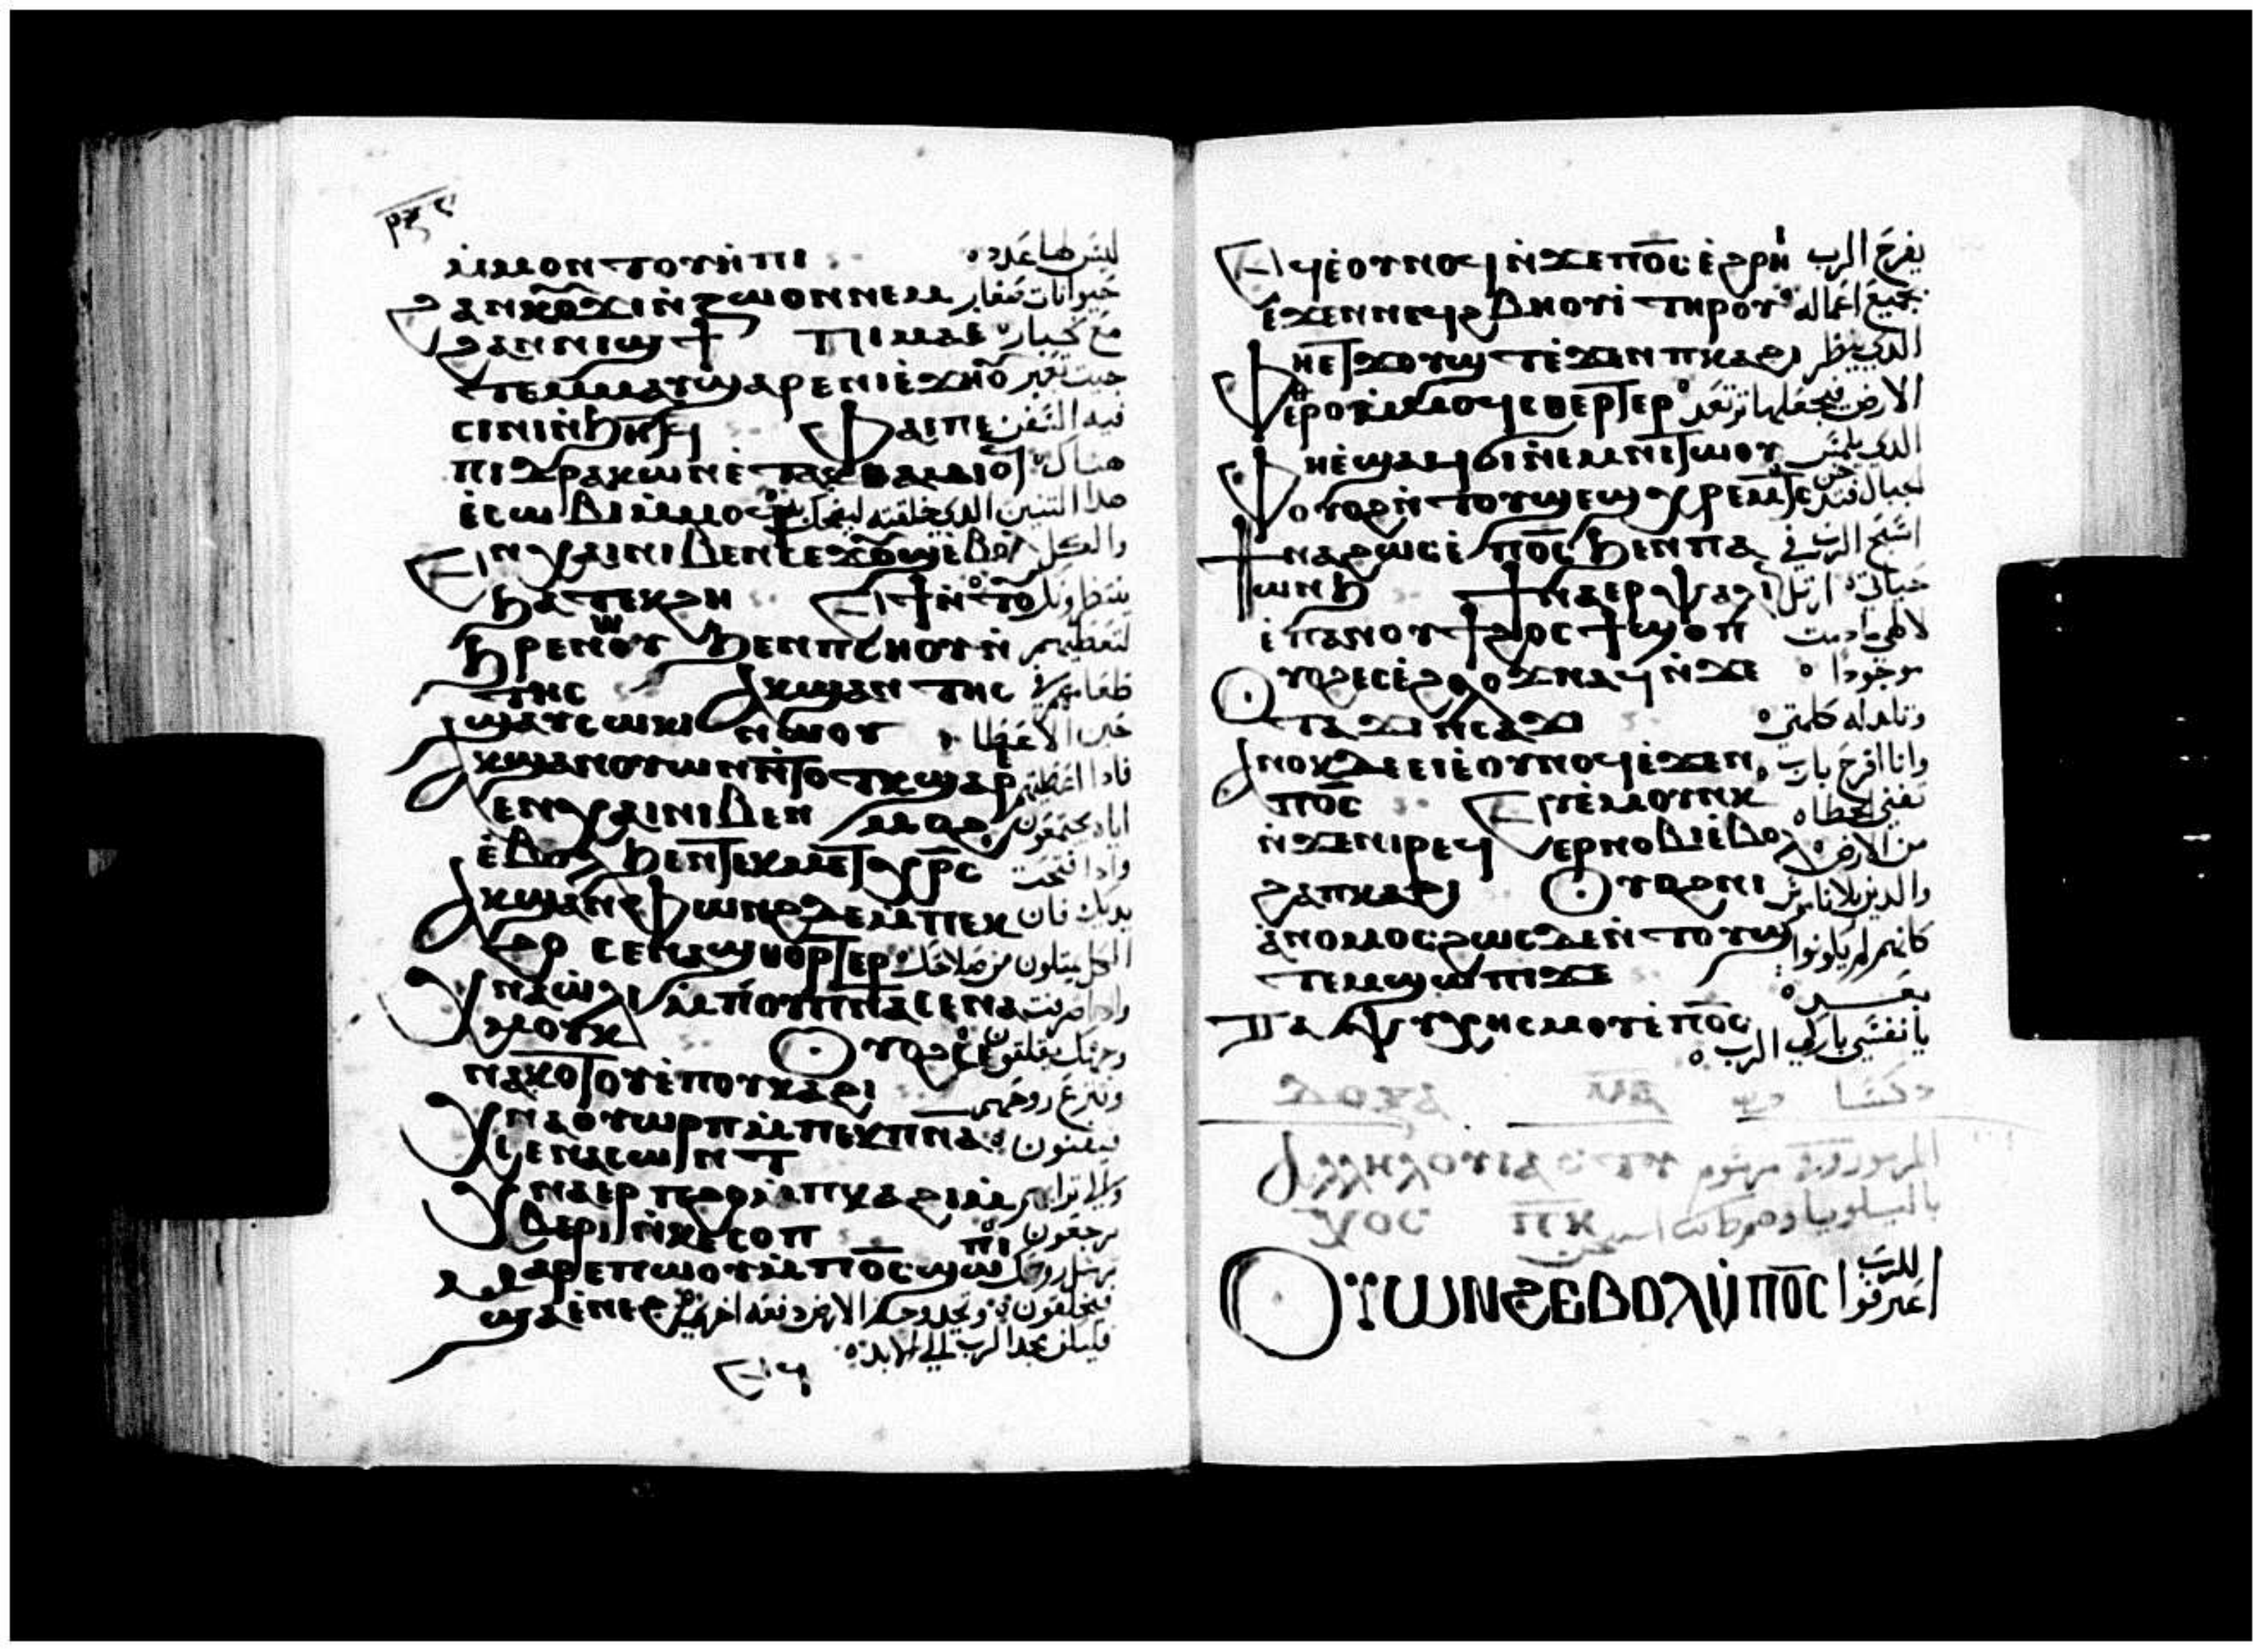 ⲙ̇ⲙⲟⲛⲧⲟⲩⲏⲡⲓ ليس لها عدد
ϩⲁⲛⲕⲟⲩϫⲓⲛ̇ⲍⲱⲟⲛⲛⲉⲙ حيوانات صغار
ϩⲁⲛⲛⲓϣϯ ⲡⲓⲙⲁⲉ̇ مع كبار
ⲧⲉⲙⲙⲁⲩϣⲁⲣⲉⲛⲓⲉ̇ϫⲏⲟ حيث تعبر
ⲥⲓⲛⲓⲛ̇ϧⲏⲧϥ ⲫⲁⲓⲡⲉ فيه السفن
ⲡⲓⲇⲣⲁⲕⲱⲛⲉ̇ⲧⲁⲕⲑⲁⲙⲓⲟϥ هناك
ⲉ̇ⲥⲱⲃⲓⲙ̇ⲙⲟϥ هذا التنين الذي خلقته ليضحك به
ⲉⲛⲭⲁⲓⲛⲓⲃⲉⲛⲥⲉϫⲟⲩϣⲧⲉ̇ⲃⲟⲗ والكل
ϧⲁⲧⲉⲕϩⲏ ⲉϯⲛ̇ⲧⲟ ينتظرونك
ϧⲣⲉⲛⲱⲟⲩ ϧⲉⲛⲡⲥⲏⲟⲩⲛ̇ لتعطيهم
ⲧⲏⲥ ⲁⲕϣⲁⲛⲧⲏⲥ طعامهم في
ϣⲁⲩⲥⲱⲕⲓ ⲛⲱⲟⲩ حين الاعطا
ⲁⲕϣⲁⲛⲟⲩⲱⲛⲛ̇ⲧⲟⲧⲕϣⲁⲣ فاذا اعطيتهم
ⲉⲛⲭⲁⲓⲛⲓⲃⲉⲛ ⲙⲟϩ اياه يجتمعون
ⲉ̇ⲃⲟⲗ ϧⲉⲛⲧⲉⲕⲙⲉⲧⲭⲣ̄ⲥ واذا فتحت
ⲁⲕϣⲁⲛⲫⲱⲛϩⲇⲉⲙ̇ⲡⲉⲕ يديك فان
ϩⲟ ⲥⲉⲛⲁϣⲑⲟⲣⲧⲉⲣ الكل يمتلون من صلاحك
ⲭⲛⲁⲱ̇ⲗⲓ ⲙ̇ⲡⲟⲩⲡ̄ⲛ̄ⲁⲥⲉⲛⲁ واذا صرفت
ⲙⲟⲩⲛⲕ ⲟⲩⲟϩⲥⲉ وجهك يقلقون
ⲛⲁⲕⲟⲧⲟⲩⲉ̇ⲡⲟⲩⲕⲁϩⲓ وتنزع روحهم
ⲭⲛⲁⲟⲩⲱⲣⲡⲙ̇ⲡⲉⲕⲡ̄ⲛ̄ⲁ فيفنون
ⲥⲉⲛⲁⲥⲱⲛⲧ
ⲭⲛⲁⲉⲣ ⲡϩⲟⲙ̇ⲡⲕⲁϩⲓⲙ̇ والى ترابهم
ⲃⲉⲣⲓ ⲛ̇ⲕⲉⲥⲟⲡ يرجعون
ⲙⲁⲣⲉⲡⲱⲟⲩⲙ̇ⲡⲟ̄ⲥ̄ϣⲱⲡⲓ ترسل روحك
ϣⲁⲉ̇ⲛⲉϩ فيخلقون وتجدد وجه الارض دفعه اخرى
فليكن مجد الرب الى الابد
ⲉϥ
ⲉϥⲉ̇ⲟⲩⲛⲟϥⲛ̇ϫⲉⲡⲟ̄ⲥ̄ⲉ̇ϩⲣⲏⲓ يفرح الرب
ⲉ̇ϫⲉⲛⲛⲉϥϩⲃⲏⲟⲩⲓ ⲧⲏⲣⲟⲩ بجميع اعماله
ⲫⲏⲉⲧϫⲟⲩϣⲧⲉ̇ϫⲉⲛⲡⲕⲁϩⲓ الذي ينظر
ⲉ̇ⲑⲣⲟⲙ̇ⲙⲟϥⲥⲑⲉⲣⲧⲉⲣ الارض فيجعلها ترتعد
ⲫⲏⲉ̇ϣⲁϥϭⲓⲛⲉⲙⲛⲓⲧⲱⲟⲩ الذي يلمس
ⲟⲩⲟϩⲛ̇ⲧⲟⲩϣⲉϣⲭⲣⲉⲙⲧⲥ الجبال فتدخن
ϯⲛⲁϩⲱⲥⲉ̇ⲡⲟ̄ⲥ̄ϧⲉⲛⲡⲁ اسبح الرب في
ⲱⲛϧ ϯⲛⲁⲉⲣⲯⲁⲗⲓ حياتي ارتل
ⲉ̇ⲡⲁⲛⲟⲩϯϩⲟⲥϯϣⲟⲡ لالهي ما دمت
ⲟⲩⲟϩⲉⲥⲉ̇ϩⲗⲟϫⲛⲁϥⲛ̇ϫⲉ موجودا
ⲧⲁϫⲓⲛⲥⲁϫⲓ وتلد له كلمتي
ⲁⲛⲟⲕⲇⲉⲉⲓⲉ̇ⲟⲩⲛⲟϥⲉ̇ϫⲉⲛ وانا افرح بالرب
ⲡⲟ̄ⲥ̄ ⲉⲩⲉ̇ⲙⲟⲩⲛⲕ تفنى الخطاه
ⲛ̇ϫⲉⲛⲓⲣⲉϥ ⲉⲣⲛⲟⲃⲓⲉ̇ⲃⲟⲗ من الارض
ϩⲁⲡⲕⲁϩⲓ ⲟⲩⲟϩⲛⲓ والذين بلا ناموس
ⲁ̇ⲛⲟⲙⲟⲥϩⲱⲥⲇⲉⲛ̇ⲧⲟⲩϣ كانهم لم يكونوا
ⲧⲉⲙϣⲱⲡⲓϫⲉ
ⲧⲁⲯⲩⲭⲏⲥⲙⲟⲩⲉ̇ⲡⲟ̄ⲥ̄ يا نفسي باركي الرب
ⲁⲗⲗⲏⲗⲟⲩⲓⲁ المزمور
ⲟⲩⲱⲛϩⲉⲃⲟⲗⲙ̇ⲡⲟ̄ⲥ̄ اعترفوا للرب